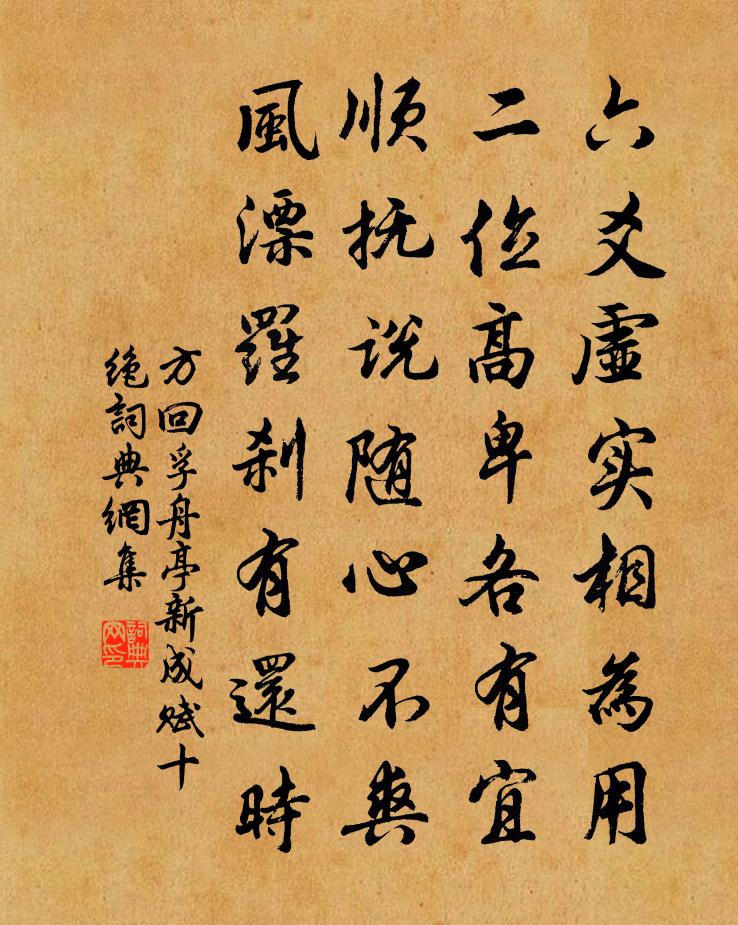 六爻虛实相為用
二位高卑各有宜
順抚説随心不爽
風漂羅刹有還時
方回孚舟亭新成赋十
绝詞典網集
詞典
网印